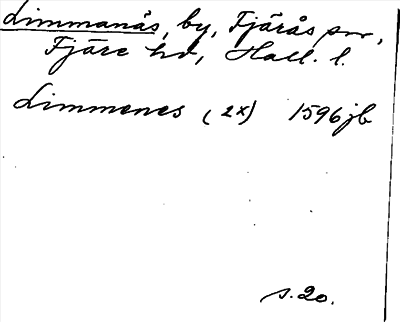 Limmanäs, by, Fjärås sn,
Fjäre hd, Hall. l.
Limmenes (2x) 1596 jb
s. 20.